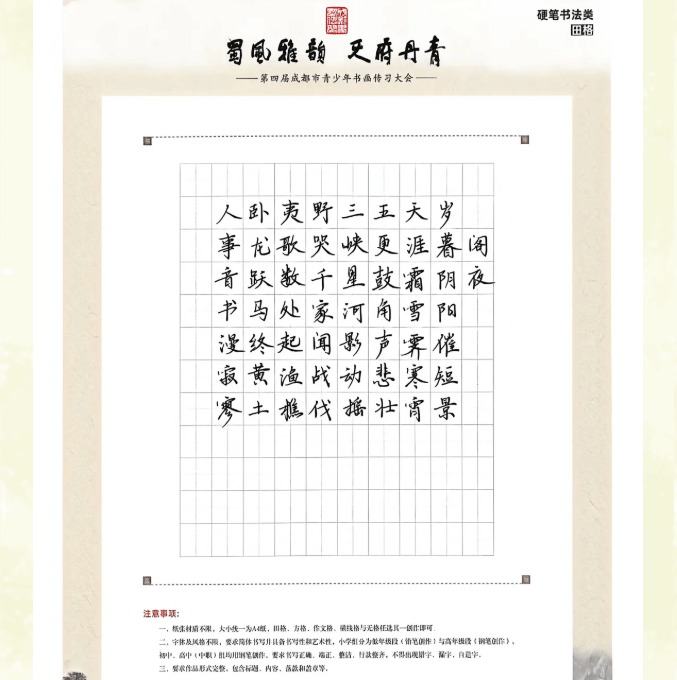 硬笔书法类
田格
蜀风雅韵 天府丹青
——第四届成都市青少年书画传习大会——
阁夜
岁暮阴阳催短景
天涯霜雪霁寒宵
五更鼓角声悲壮
三峡星河影动摇
野哭千家闻战伐
夷歌数处起渔樵
卧龙跃马终黄土
人事音书漫寂寥
注意事项:
一、纸张材质不限,大小统一为A4纸,田格、方格、作文格、横线格与无格任选其一创作即可。
二、字体及风格不限,要求简体书写并具备书写性和艺术性,小学组分为低年级段(铅笔创作)与高年级段(钢笔创作),
初中、高中(中职)组均用钢笔创作。要求书写正确、端正、整洁、行款整齐,不得出现错字、漏字、自造字。
三、要求作品形式完整,包含标题、内容、落款和盖章等。